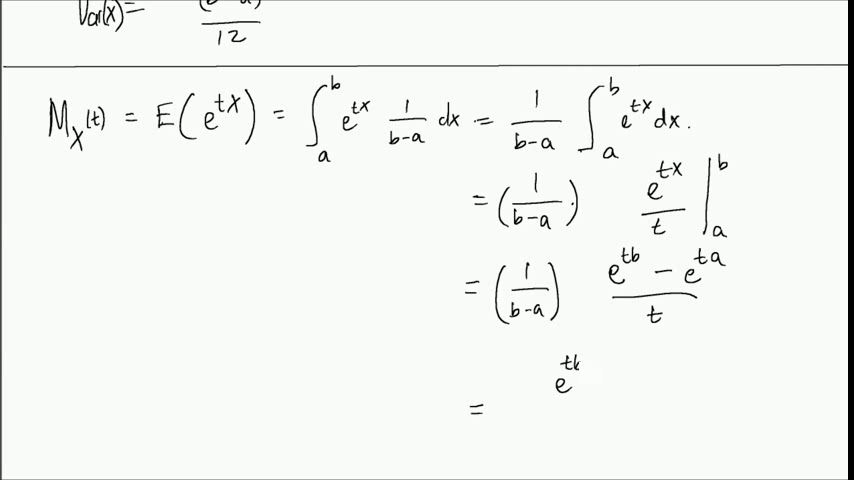 Var(x)= (b-a)² / 12
M_X(t) = E(e^{tX}) = ∫_a^b e^{tx} 1/(b-a) dx = 1/(b-a) ∫_a^b e^{tx} dx.
= (1/(b-a)) e^{tx}/t |_a^b
= (1/(b-a)) (e^{tb} - e^{ta})/t
= e^{tb